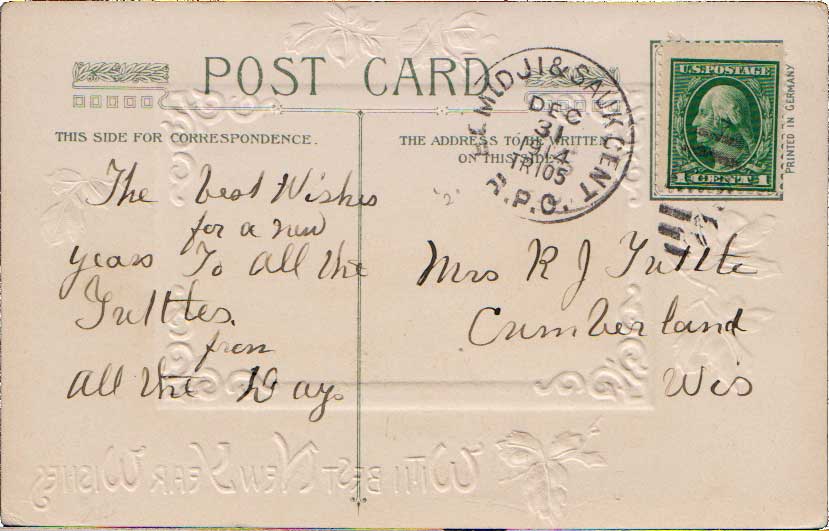 POST CARD
THIS SIDE FOR CORRESPONDENCE.
THE ADDRESS TO BE WRITTEN
ON THIS SIDE
BEMIDJI & SAUK CENT.
DEC
31
1914
TR105
R.P.O.
U.S. POSTAGE
1 CENT 1
PRINTED IN GERMANY
The best Wishes
for a new
years To all the
Tuttles.
from
all the Days
Mrs R J Tuttle
Cumberland
Wis
WITH BEST NEW YEAR WISHES